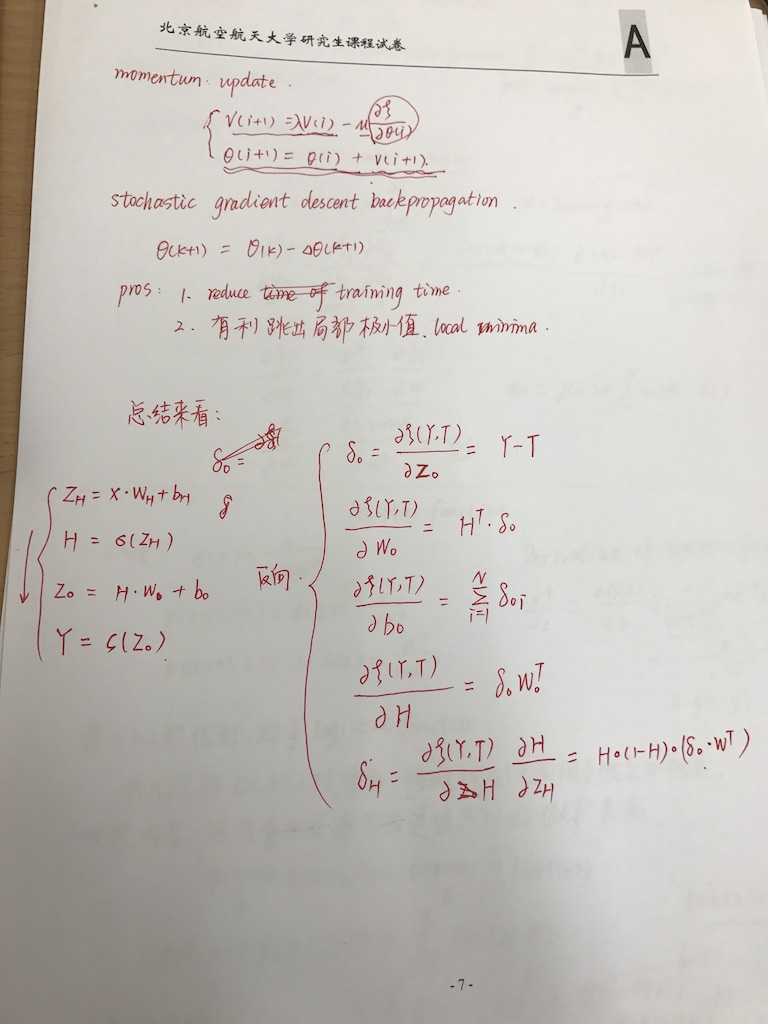 北京航空航天大学研究生课程试卷
A
momentum update.
V(i+1) = λV(i) - μ ∂ξ/∂θ(i)
θ(i+1) = θ(i) + V(i+1).
stochastic gradient descent backpropagation.
θ(k+1) = θ(k) - Δθ(k+1)
pros: 1. reduce time of training time.
2. 有利跳出局部极小值、local minima.
总结来看:
δo =
Z_H = X·W_H + b_H
H = σ(Z_H)
Zo = H·Wo + bo
Y = ς(Zo)
反向.
δo = ∂ξ(Y,T)/∂Zo = Y-T
∂ξ(Y,T)/∂Wo = H^T·δo
∂ξ(Y,T)/∂bo = Σ_{i=1}^{N} δoi
∂ξ(Y,T)/∂H = δo Wo^T
δ_H = ∂ξ(Y,T)/∂H ∂H/∂Z_H = H∘(1-H)∘(δo·W^T)
-7-